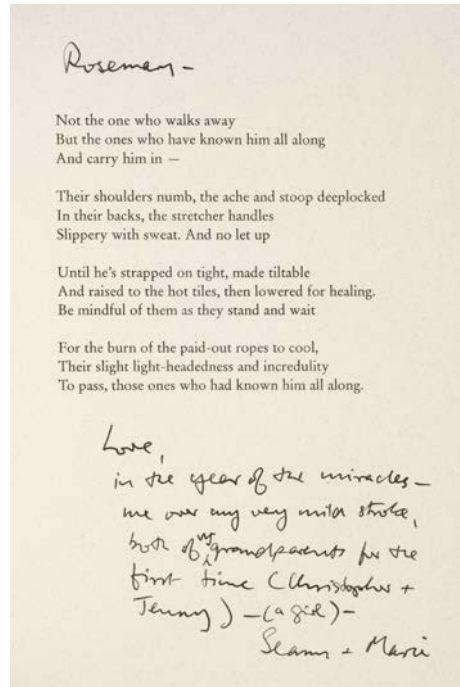 Rosemary –
Not the one who walks away
But the ones who have known him all along
And carry him in —
Their shoulders numb, the ache and stoop deeplocked
In their backs, the stretcher handles
Slippery with sweat. And no let up
Until he’s strapped on tight, made tiltable
And raised to the hot tiles, then lowered for healing.
Be mindful of them as they stand and wait
For the burn of the paid-out ropes to cool,
Their slight light-headedness and incredulity
To pass, those ones who had known him all along.
Love,
in the year of the miracles –
me over my very mild stroke,
both of us grandparents for the
first time (Christopher +
Jenny) – (a girl) –
Seamus + Marie